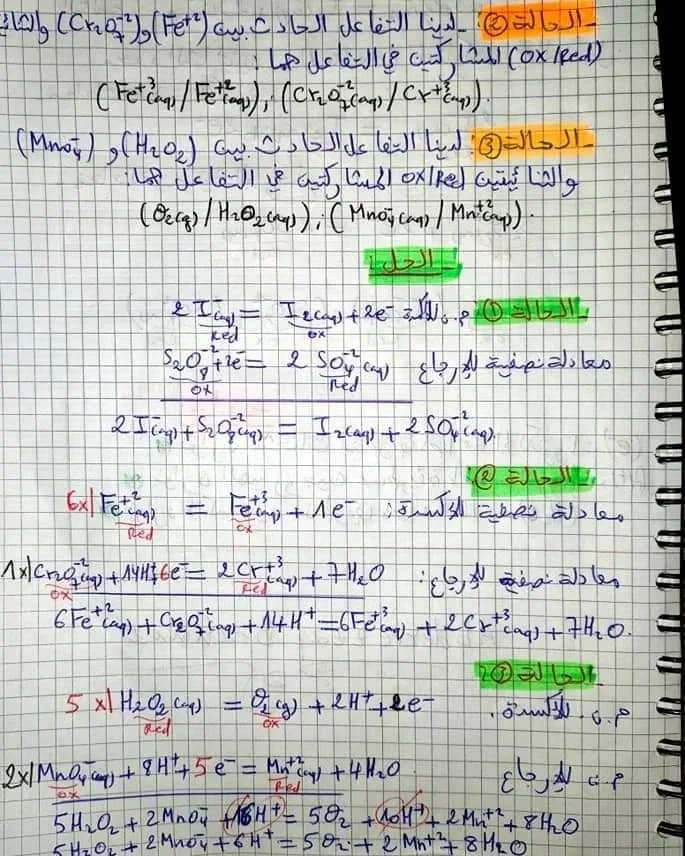 - الحالة ②: - لدينا التفاعل الحادث بين (Fe⁺²) و (Cr₂O₇⁻²) والثنائ
(OX/Red) المشاركتين في التفاعل هما:
(Fe⁺³(aq) / Fe⁺²(aq)), (Cr₂O₇⁻²(aq) / Cr⁺³(aq)).
- الحالة ③: لدينا التفاعل الحادث بين (H₂O₂) و (MnO₄⁻)
والثنائيتين OX/Red المشاركتين في التفاعل هما:
(O₂(g) / H₂O₂(aq)), (MnO₄⁻(aq) / Mn⁺²(aq)).
- الحل:
- الحالة ①: م.ن للأكسدة 2I⁻(aq) = I₂(aq) + 2e⁻
Red OX
معادلة نصفية للإرجاع S₂O₈⁻² + 2e⁻ = 2SO₄⁻²(aq)
OX Red
2I⁻(aq) + S₂O₈⁻²(aq) = I₂(aq) + 2SO₄⁻²(aq)
- الحالة ②:
معادلة نصفية للأكسدة: 6x| Fe⁺²(aq) = Fe⁺³(aq) + 1e⁻
Red OX
معادلة نصفية للإرجاع: 1x| Cr₂O₇⁻²(aq) + 14H⁺ + 6e⁻ = 2Cr⁺³(aq) + 7H₂O
OX Red
6Fe⁺²(aq) + Cr₂O₇⁻²(aq) + 14H⁺ = 6Fe⁺³(aq) + 2Cr⁺³(aq) + 7H₂O.
- الحالة ③:
م.ن. للأكسدة. 5x| H₂O₂(aq) = O₂(g) + 2H⁺ + 2e⁻
Red OX
م.ن للإرجاع 2x| MnO₄⁻(aq) + 8H⁺ + 5e⁻ = Mn⁺²(aq) + 4H₂O
OX Red
5H₂O₂ + 2MnO₄⁻ + 16H⁺ = 5O₂ + 10H⁺ + 2Mn⁺² + 8H₂O
5H₂O₂ + 2MnO₄⁻ + 6H⁺ = 5O₂ + 2Mn⁺² + 8H₂O